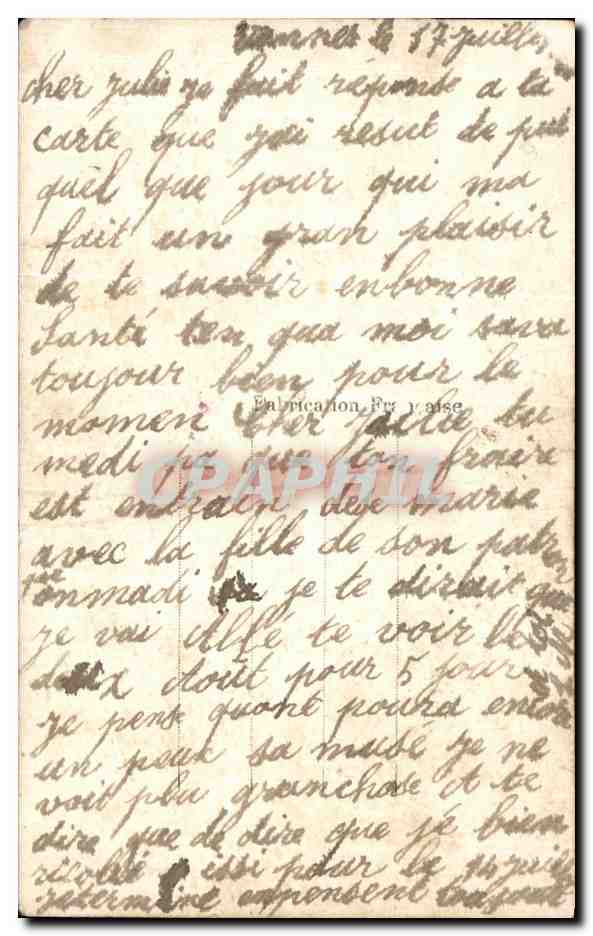 le 17 juillet
cher julie je fait réponse a ta
carte que jai resut de puis
quel que jour qui ma
fait un gran plaisir
de te savoir enbonne
Santé ten qua moi sava
toujour bien pour le
momen cher julie tu
Fabrication Française
medi que ton fraire
est entrain de marie
avec la fille de son patron
onmadi je te dirait que
je vai Allé te voir le
deux Août pour 5 jour
je pense quont poura encore
un peux sa musé je ne
voit plu granchose A te
dire que de dire que jé bien
issi pour le 14 juillet
jatermine enpensent toujour
CPAPHIL